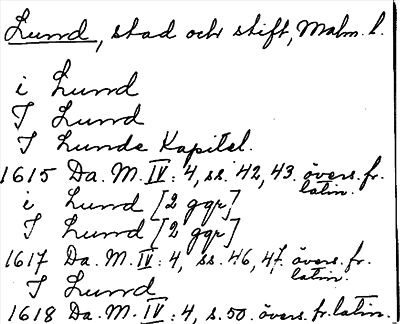 Lund, stad och stift, Malm. l.
i Lund
I Lund
I Lunde Kapitel.
1615 Da. M. IV: 4, ss. 42, 43. övers. fr. latin.
i Lund [2 ggr]
I Lund [2 ggr]
1617 Da. M. IV: 4, ss. 46, 47. övers. fr. latin.
I Lund
1618 Da. M. IV: 4, s. 50. övers. fr. latin.